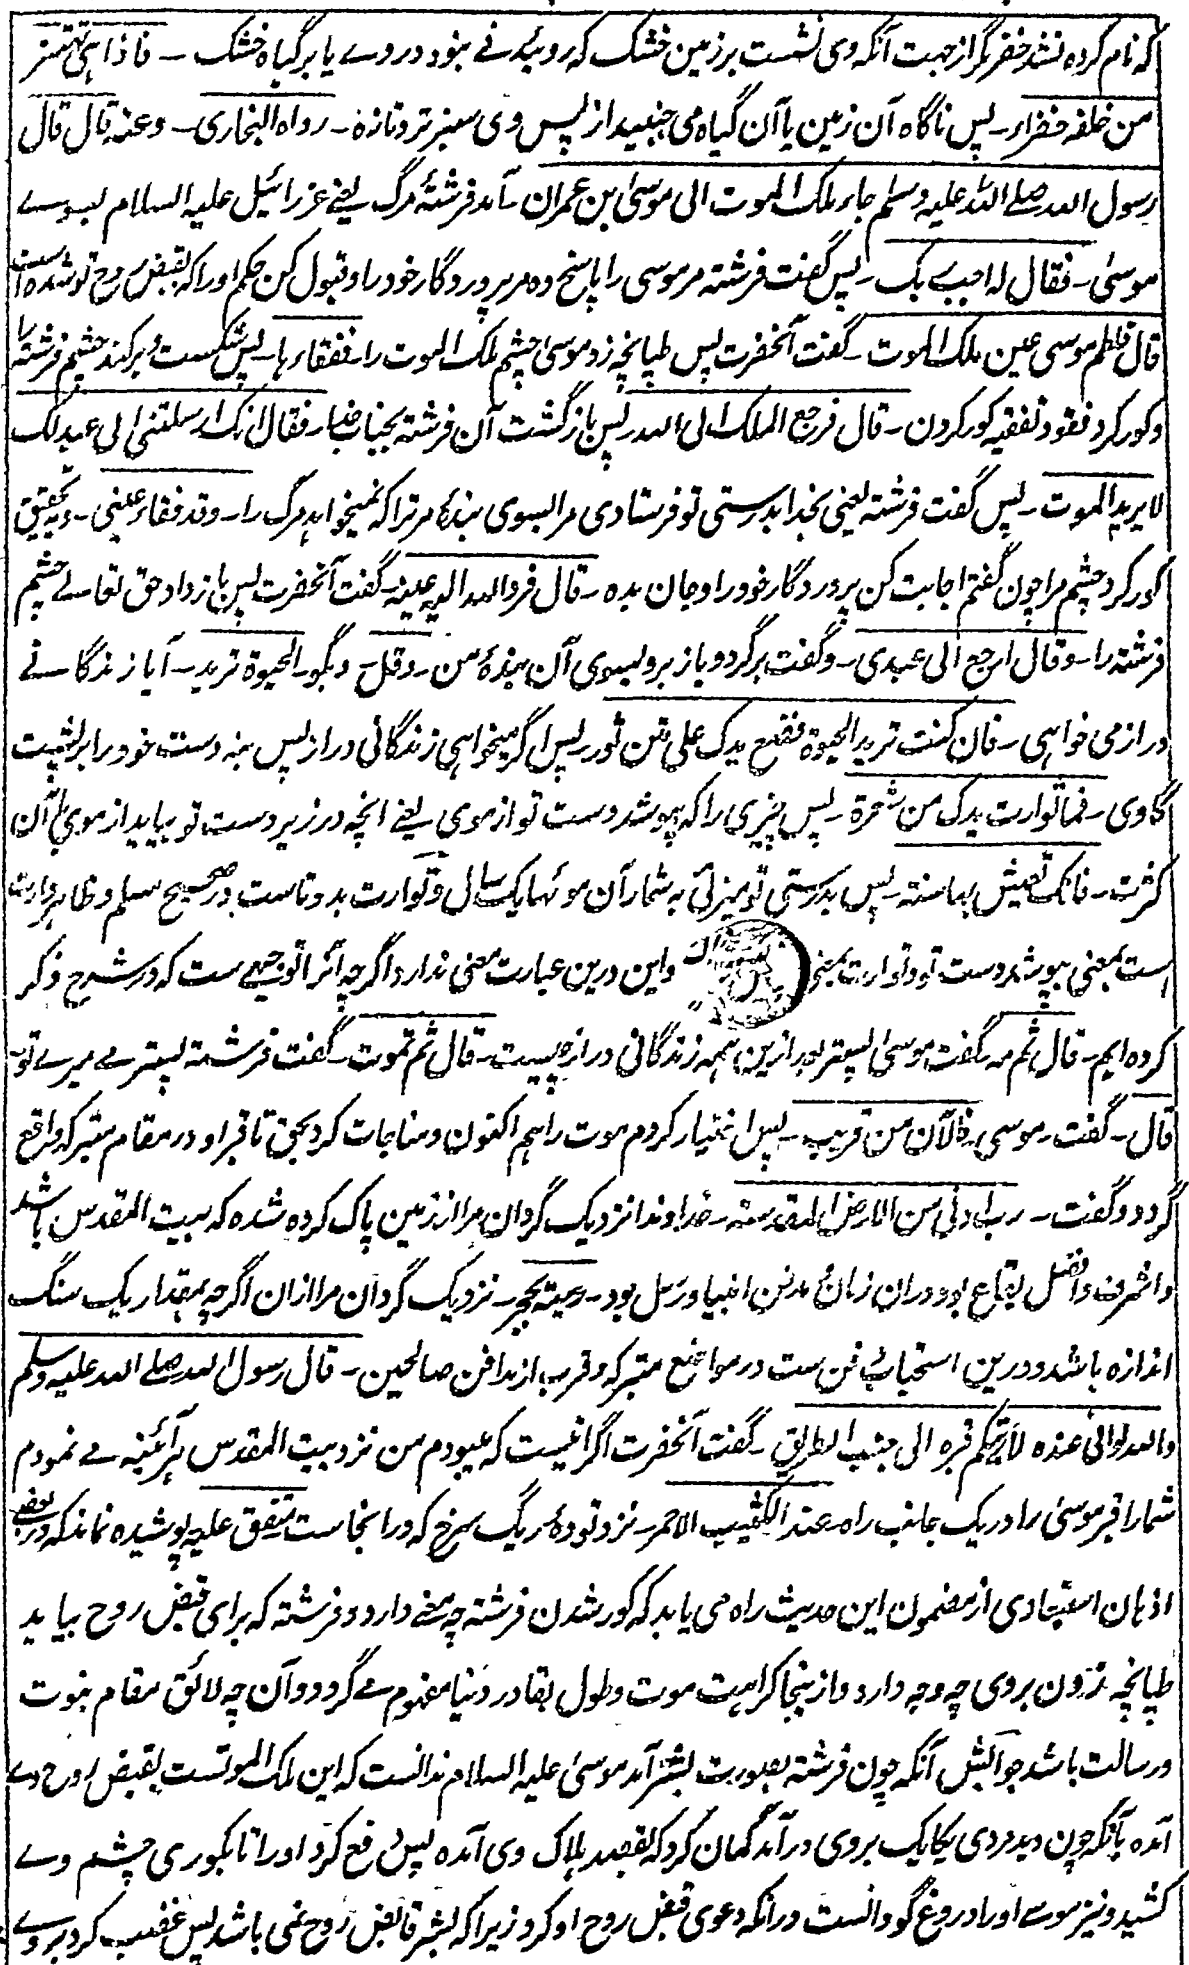 که نام کرده نشد خضر مگر از جهت آنکه وی نشست بر زمین خشک که روئیدنے نبود در وے یا بر گیاه خشک ۔ فاذا هی تهتز
من خلفه خضراء ۔ پس ناگاه آن زمین یا آن گیاه می جنبید از پس وی سبز تر و تازه ۔ رواه البخاری ۔ وعنه قال قال
رسول الله صلے الله علیه وسلم جاء ملک الموت الی موسیٰ بن عمران ۔ آمد فرشتهٔ مرگ یعنے عزرائیل علیه السلام بسوے
موسیٰ ۔ فقال له اجب ربک ۔ پس گفت فرشته مر موسی را پاسخ ده مر پروردگار خود را و قبول کن حکم او را که بقبض روح تو شده است
قال فلطم موسی عین ملک الموت ۔ گفت آنحضرت پس طپانچه زد موسیٰ چشم ملک الموت را ۔ ففقاءها ۔ پس شکست و برکند چشم فرشته را
و کور کرد فقؤ و تفقیه کور کردن ۔ قال فرجع الملک الی الله پس بازگشت آن فرشته بجناب خدا ۔ فقال انک ارسلتنی الی عبد لک
لا یرید الموت ۔ پس گفت فرشته یعنی بخدا بدرستی تو فرستادی مرا بسوی بندهٔ مر ترا که نمیخواهد مرگ را ۔ وقد فقاء عینی ۔ و بتحقیق
کور کرد چشم مرا چون گفتم اجابت کن پروردگار خود را و جان بده ۔ قال فرد الله الیه عینه ۔ گفت آنحضرت پس باز داد حق تعالے چشم
فرشته را ۔ وقال ارجع الی عبدی ۔ و گفت برگرد و باز برو بسوی آن بندهٔ من ۔ وقل ۔ و بگو ۔ الحیوة ترید ۔ آیا زندگانے
دراز می خواهی ۔ فان کنت ترید الحیوة فضع یدک علی متن ثور ۔ پس اگر میخواهی زندگانی دراز پس بنه دست خود را بر پشت
گاوی ۔ فما توارت یدک من شعرة ۔ پس چیزی را که بپوشد دست تو از موی یعنے انچه در زیر دست تو بیاید از موی یا آن
کثرت ۔ فانک تعیش بها سنة ۔ پس بدرستی تو میزئی به شمار آن موئها یک سال و توارت بدو تاست در صحیح مسلم و ظاهر وارت
است بمعنی بپوشد دست تو و توارت بمعنی و این درین عبارت معنی ندارد اگرچه آنرا توجیهے ست که در شرح ذکر
کرده ایم ۔ قال ثم مه ۔ گفت موسیٰ پستر بعد ازین همه زندگانی دراز چیست ۔ قال ثم تموت ۔ گفت فرشته پستر مے میرے تو
قال ۔ گفت ۔ موسی ۔ فالآن من قریب ۔ پس اختیار کردم موت را هم اکنون و مناجات کرد بحق تا قبر او در مقام متبرک واقع
گردد و گفت ۔ رب ادننی من الارض المقدسة ۔ خداوندا نزدیک گردان مرا از زمین پاک کرده شده که بیت المقدس باشد
و اشرف و افضل بقاع بود در ان زمان و مدفن انبیا و رسل بود ۔ رمیة بحجر ۔ نزدیک گردان مرا ازان اگرچه بمقدار یک سنگ
اندازه باشد و درین استحباب دفن ست در مواضع متبرکه و قرب از مدافن صالحین ۔ قال رسول الله صلے الله علیه وسلم
والله لو انی عنده لأریتکم قبره الی جنب الطریق ۔ گفت آنحضرت اگر انیست که میبودم من نزد بیت المقدس هر آئینه مے نمودم
شما را قبر موسیٰ را در یک جانب راه ۔ عند الکثیب الاحمر ۔ نزد تودهٔ ریگ سرخ که در انجاست متفق علیه پوشیده نماند که در بعضے
اذهان استبعادی از مضمون این حدیث راه می یابد که کور شدن فرشته چه معنے دارد و فرشته که برای قبض روح بیاید
طپانچه زدن بروی چه وجه دارد و از ینجا کراهت موت و طول بقا در دنیا مفهوم مے گردد و آن چه لائق مقام نبوت
و رسالت باشد جوابش آنکه چون فرشته بصورت بشر آمد موسیٰ علیه السلام ندانست که این ملک الموتست بقبض روح وے
آمده یا آنکه چون دید مردی یکایک بروی در آمد گمان کرد که بقصد هلاک وی آمده پس دفع کرد او را تا بکوری چشم وے
کشید و نیز موسے او را دروغ گو دانست در انکه دعوی قبض روح او کرد زیرا که بشر قابض روح نمی باشد پس غضب کرد بروے